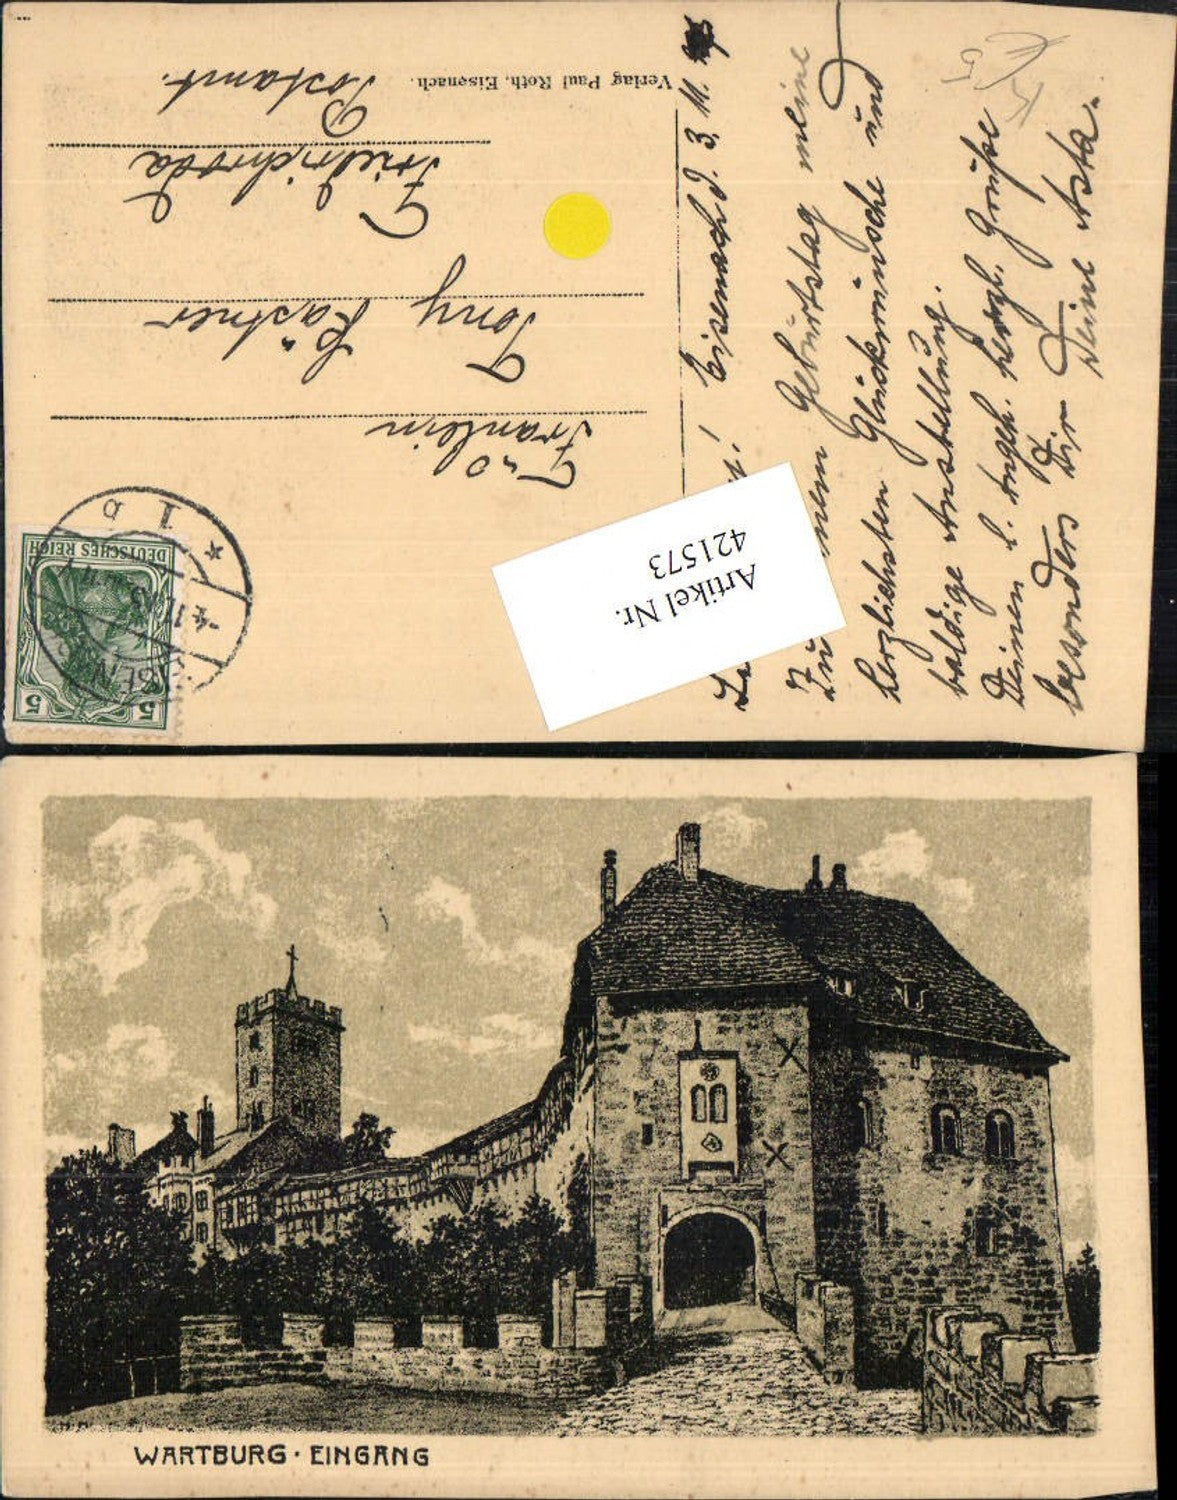 Eisenach d. 3. 11.
Zu
Geburtstag meine
herzlichsten Glückwünsche und
baldige Anstellung.
Deinen l. Angeh. herzl. Grüße
besonders Dir
Deine Asta.
Verlag Paul Roth, Eisenach.
Fräulein
Tony Kästner
Friedrichroda
Postamt.
DEUTSCHES REICH
5 5
Artikel Nr.
421573
WARTBURG · EINGANG